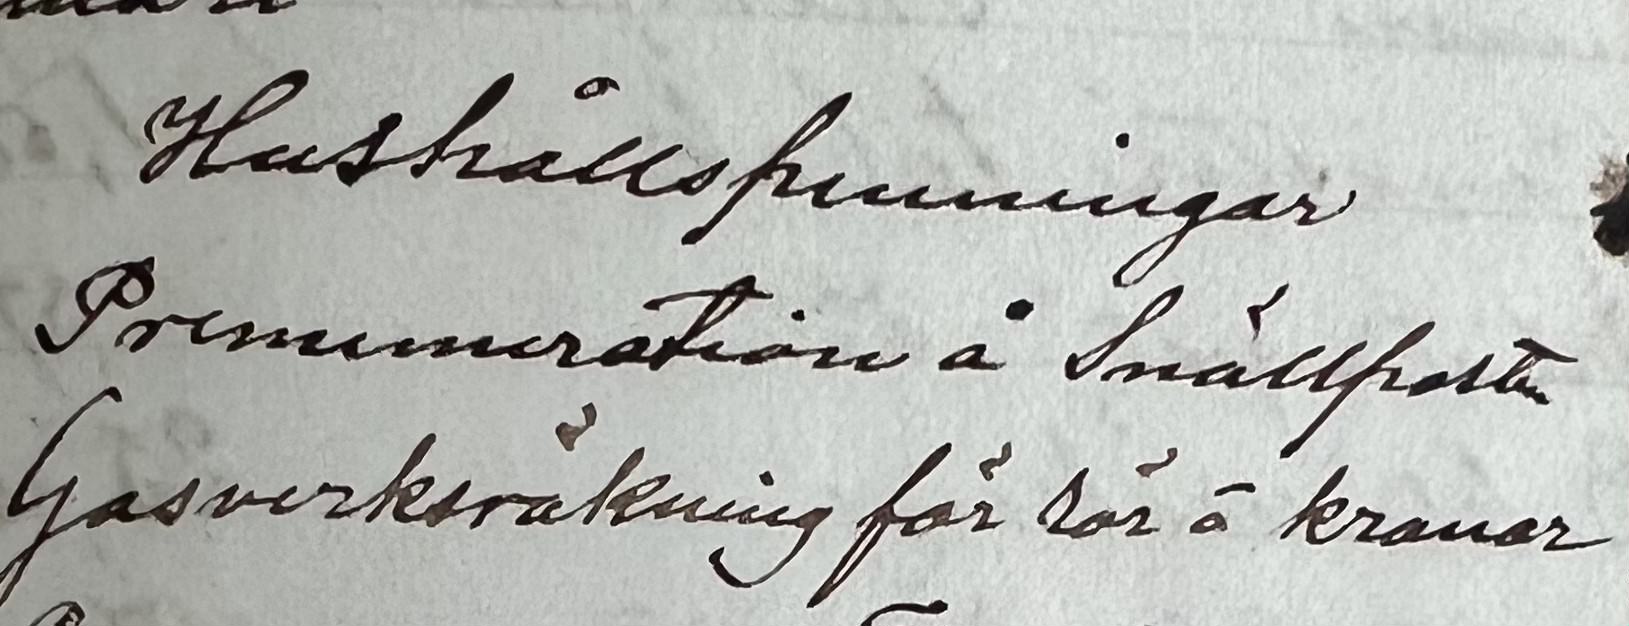 Hushållspenningar
Prenumeration å Snällposten
Gasverksräkning för rör å kranar